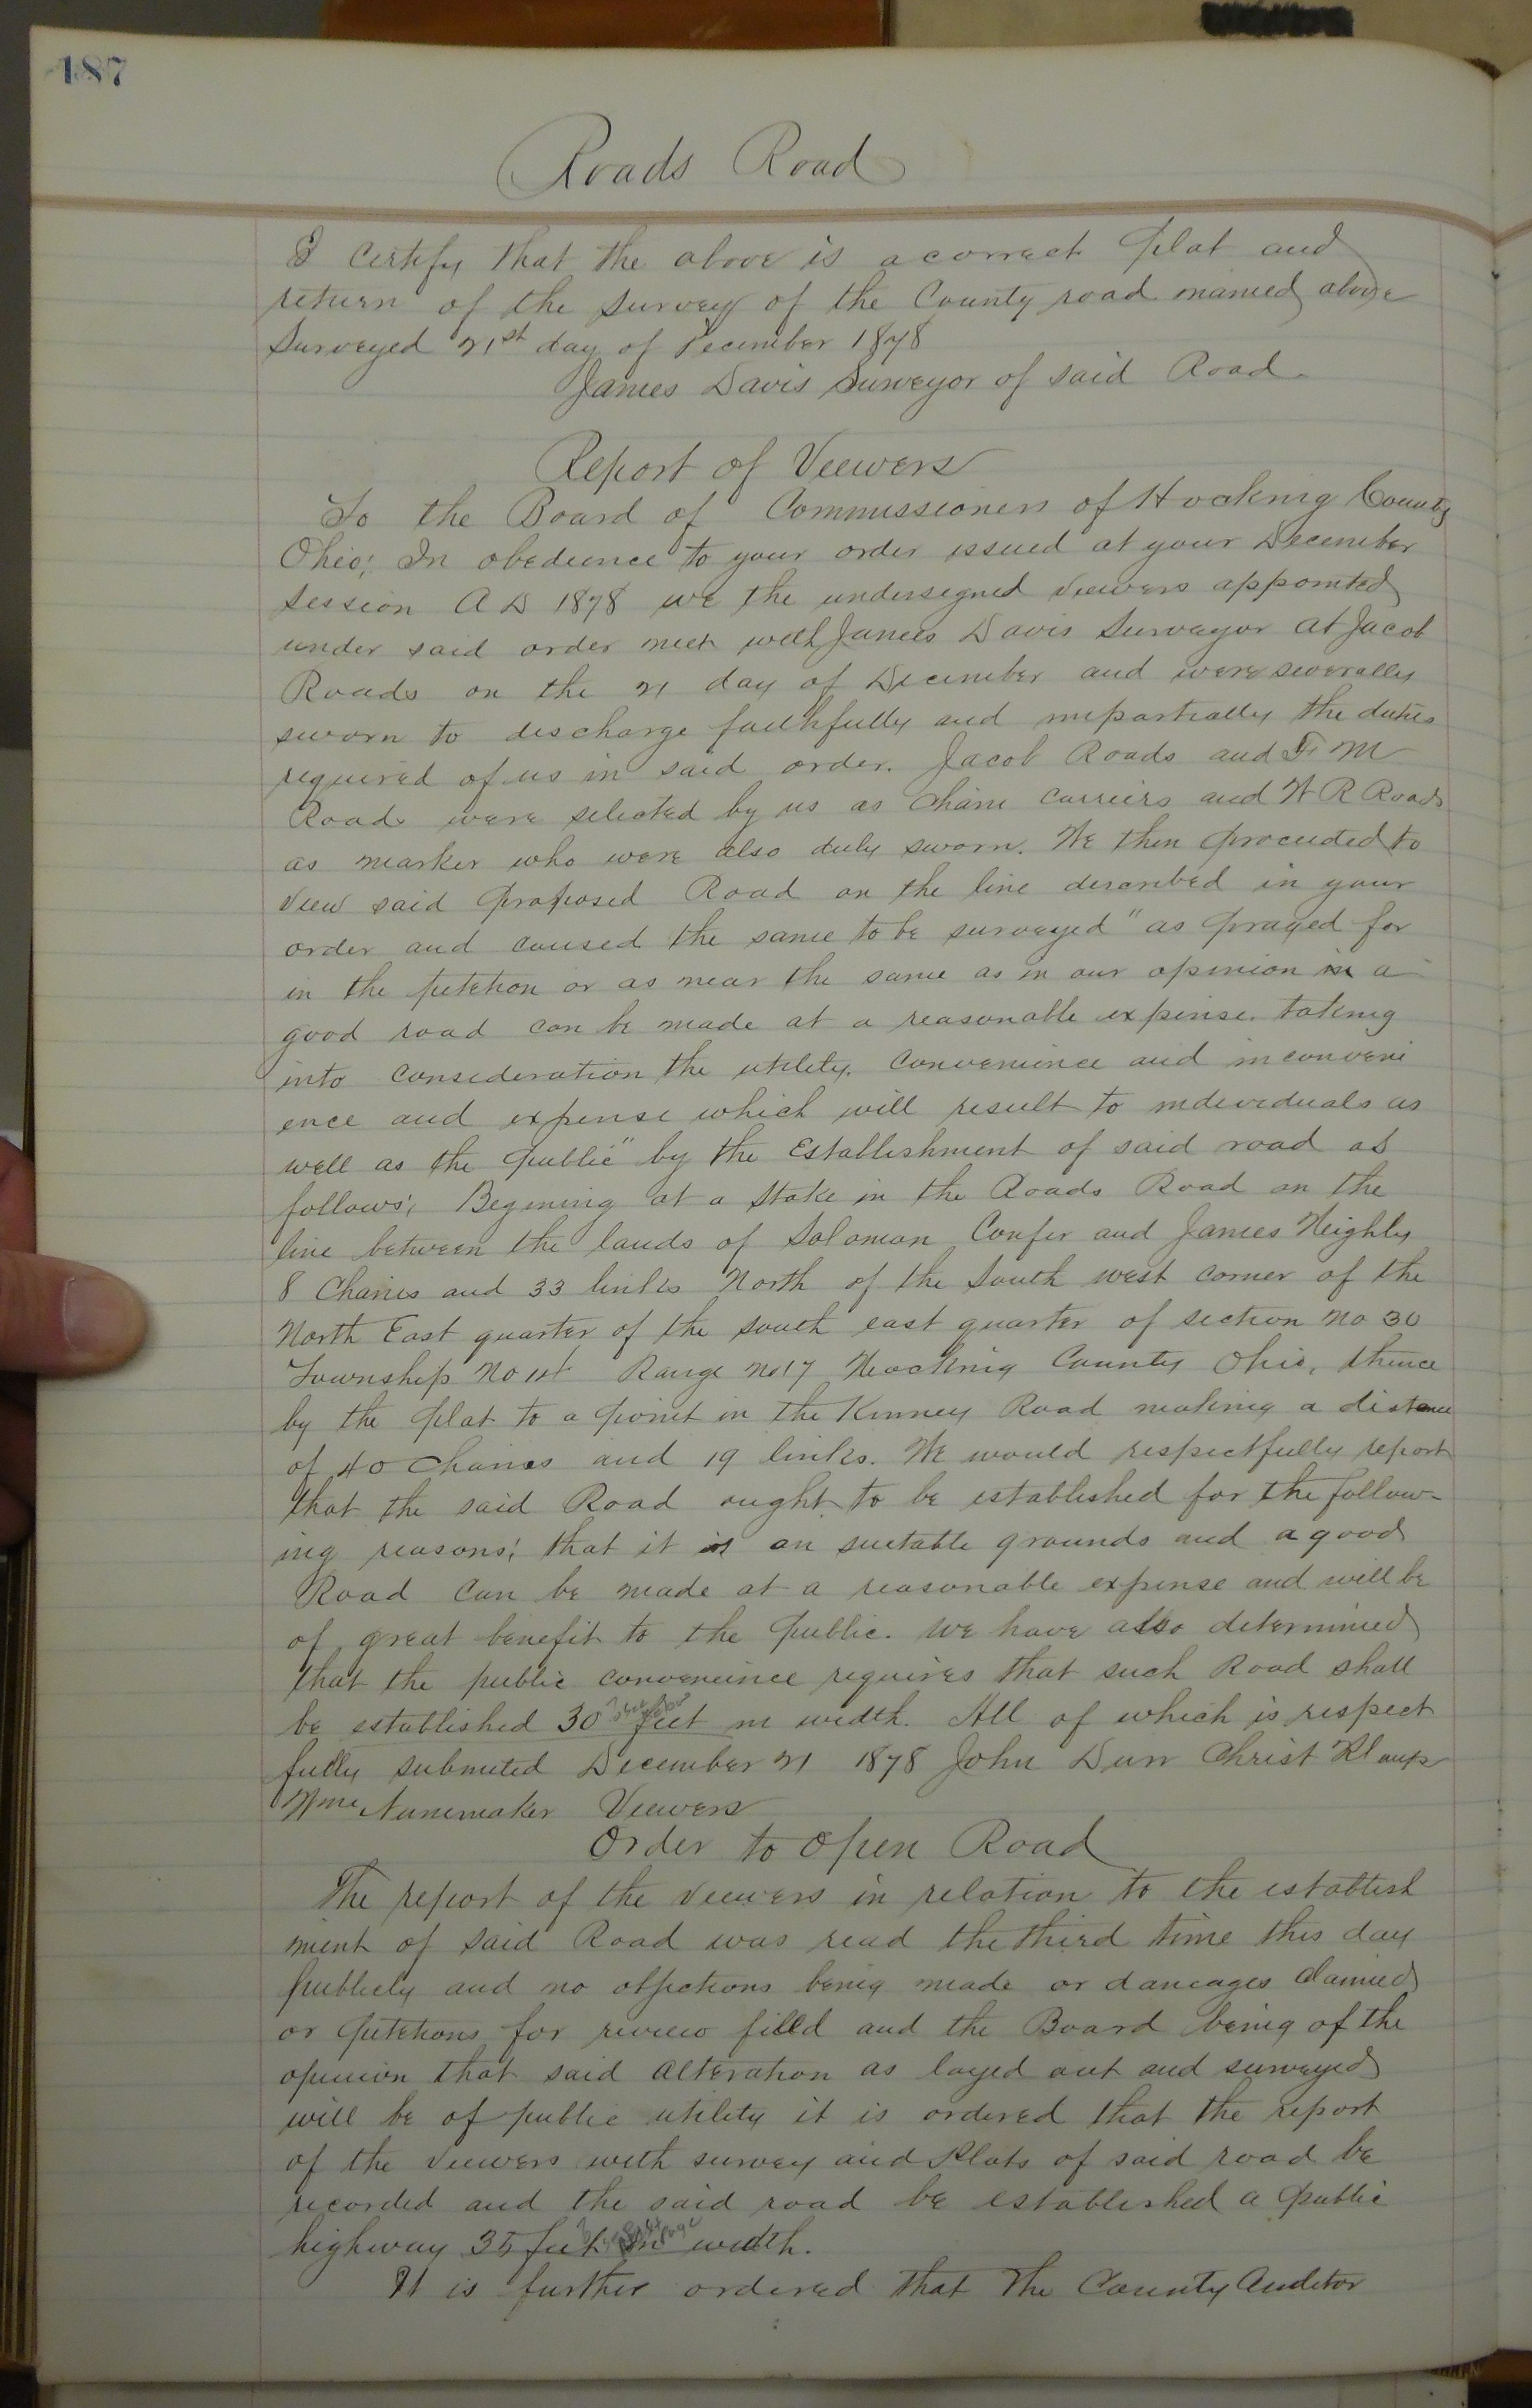 187
Roads Road
I certify that the above is a correct plat and
return of the survey of the County road named above
Surveyed 21st day of December 1878
James Davis Surveyor of said Road.
Report of Viewers
To the Board of Commissioners of Hocking County
Ohio; In obedience to your order issued at your December
Session A D 1878 we the undersigned viewers appointed
under said order met with James Davis Surveyor at Jacob
Roads on the 21 day of December and were severally
sworn to discharge faithfully and impartially the duties
required of us in said order. Jacob Roads and F M
Roads were selected by us as chain carriers and W R Roads
as marker who were also duly sworn. We then proceeded to
view said proposed Road on the line described in your
order and caused the same to be surveyed "as prayed for
in the petition or as near the same as in our opinion a
good road can be made at a reasonable expense. taking
into consideration the utility, convenience and inconveni
ence and expense which will result to individuals as
well as the public" by the Establishment of said road as
follows; Begining at a stake in the Roads Road on the
line between the lands of Solomon Confer and James Heighly
8 Chains and 33 links North of the South west corner of the
North East quarter of the south east quarter of section No 30
Township No 14 Range No 17 Hocking County Ohio, thence
by the plat to a point in the Kinney Road making a distance
of 40 chains and 19 links. We would respectfully report
that the said Road ought to be established for the follow-
ing reasons; that it is on suitable grounds and a good
Road can be made at a reasonable expense and will be
of great benefit to the public. We have also determined
that the public convenience requires that such Road shall
be established 30 feet in width. All of which is respect
fully submited December 21 1878 John Durr Christ Klaups
Wm Nunemaker Viewers
Order to Open Road
The report of the viewers in relation to the establish
ment of said Road was read the third time this day
publicly and no objections being made or damages claimed
or petitions for review filed and the Board being of the
opinion that said alteration as layed out and surveyed
will be of public utility it is ordered that the report
of the viewers with survey and Plats of said road be
recorded and the said road be established a public
highway 35 feet in width.
It is further ordered that the County Auditor